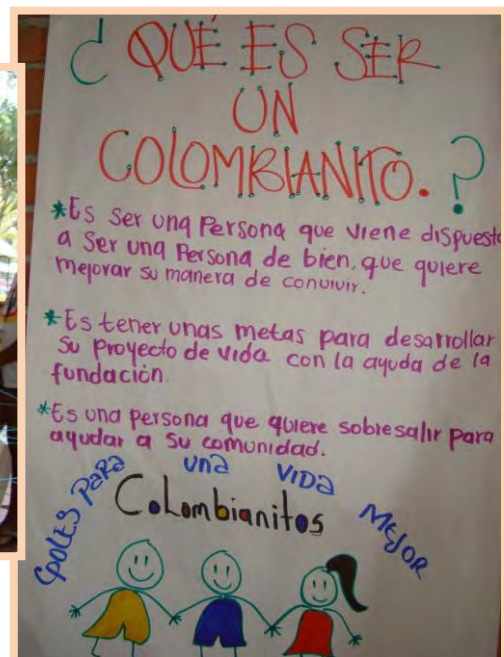 ¿ QUÉ ES SER
UN
COLOMBIANITO. ?
*Es ser una Persona que viene dispuesta
a ser una Persona de bien, que quiere
mejorar su manera de convivir.
*Es tener unas metas para desarrollar
su proyecto de vida con la ayuda de la
fundación.
*Es una persona que quiere sobresalir para
ayudar a su comunidad.
GOLES PARA UNA VIDA MEJOR
Colombianitos